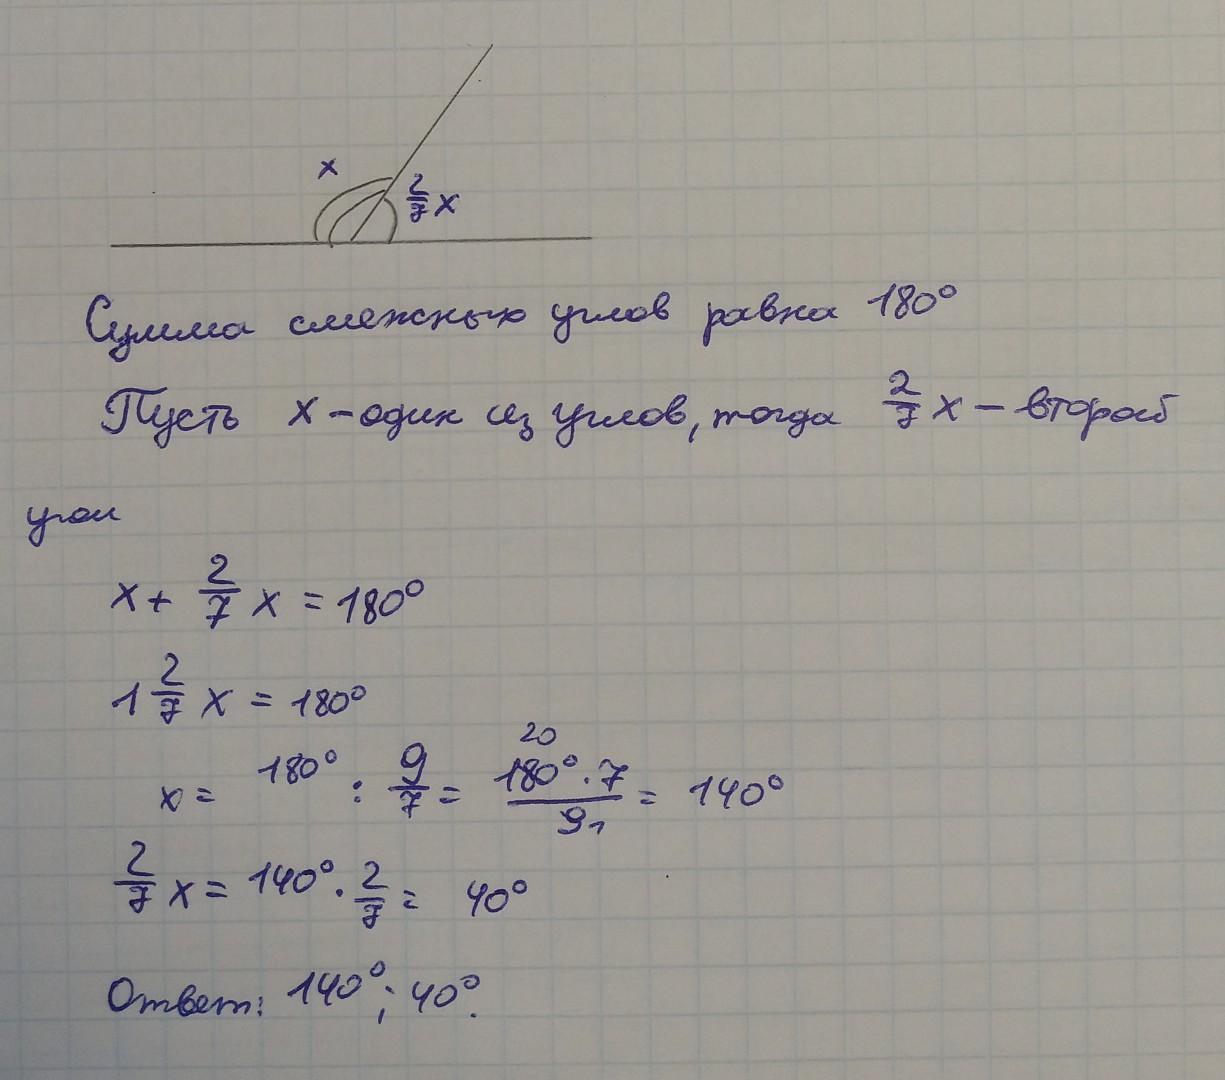 x
2/7 x
Сумма смежных углов равна 180°
Пусть x – один из углов, тогда 2/7 x – второй
угол
x + 2/7 x = 180°
1 2/7 x = 180°
20
x = 180° : 9/7 = 180° · 7 / 9 1 = 140°
2/7 x = 140° · 2/7 = 40°
Ответ: 140°; 40°.